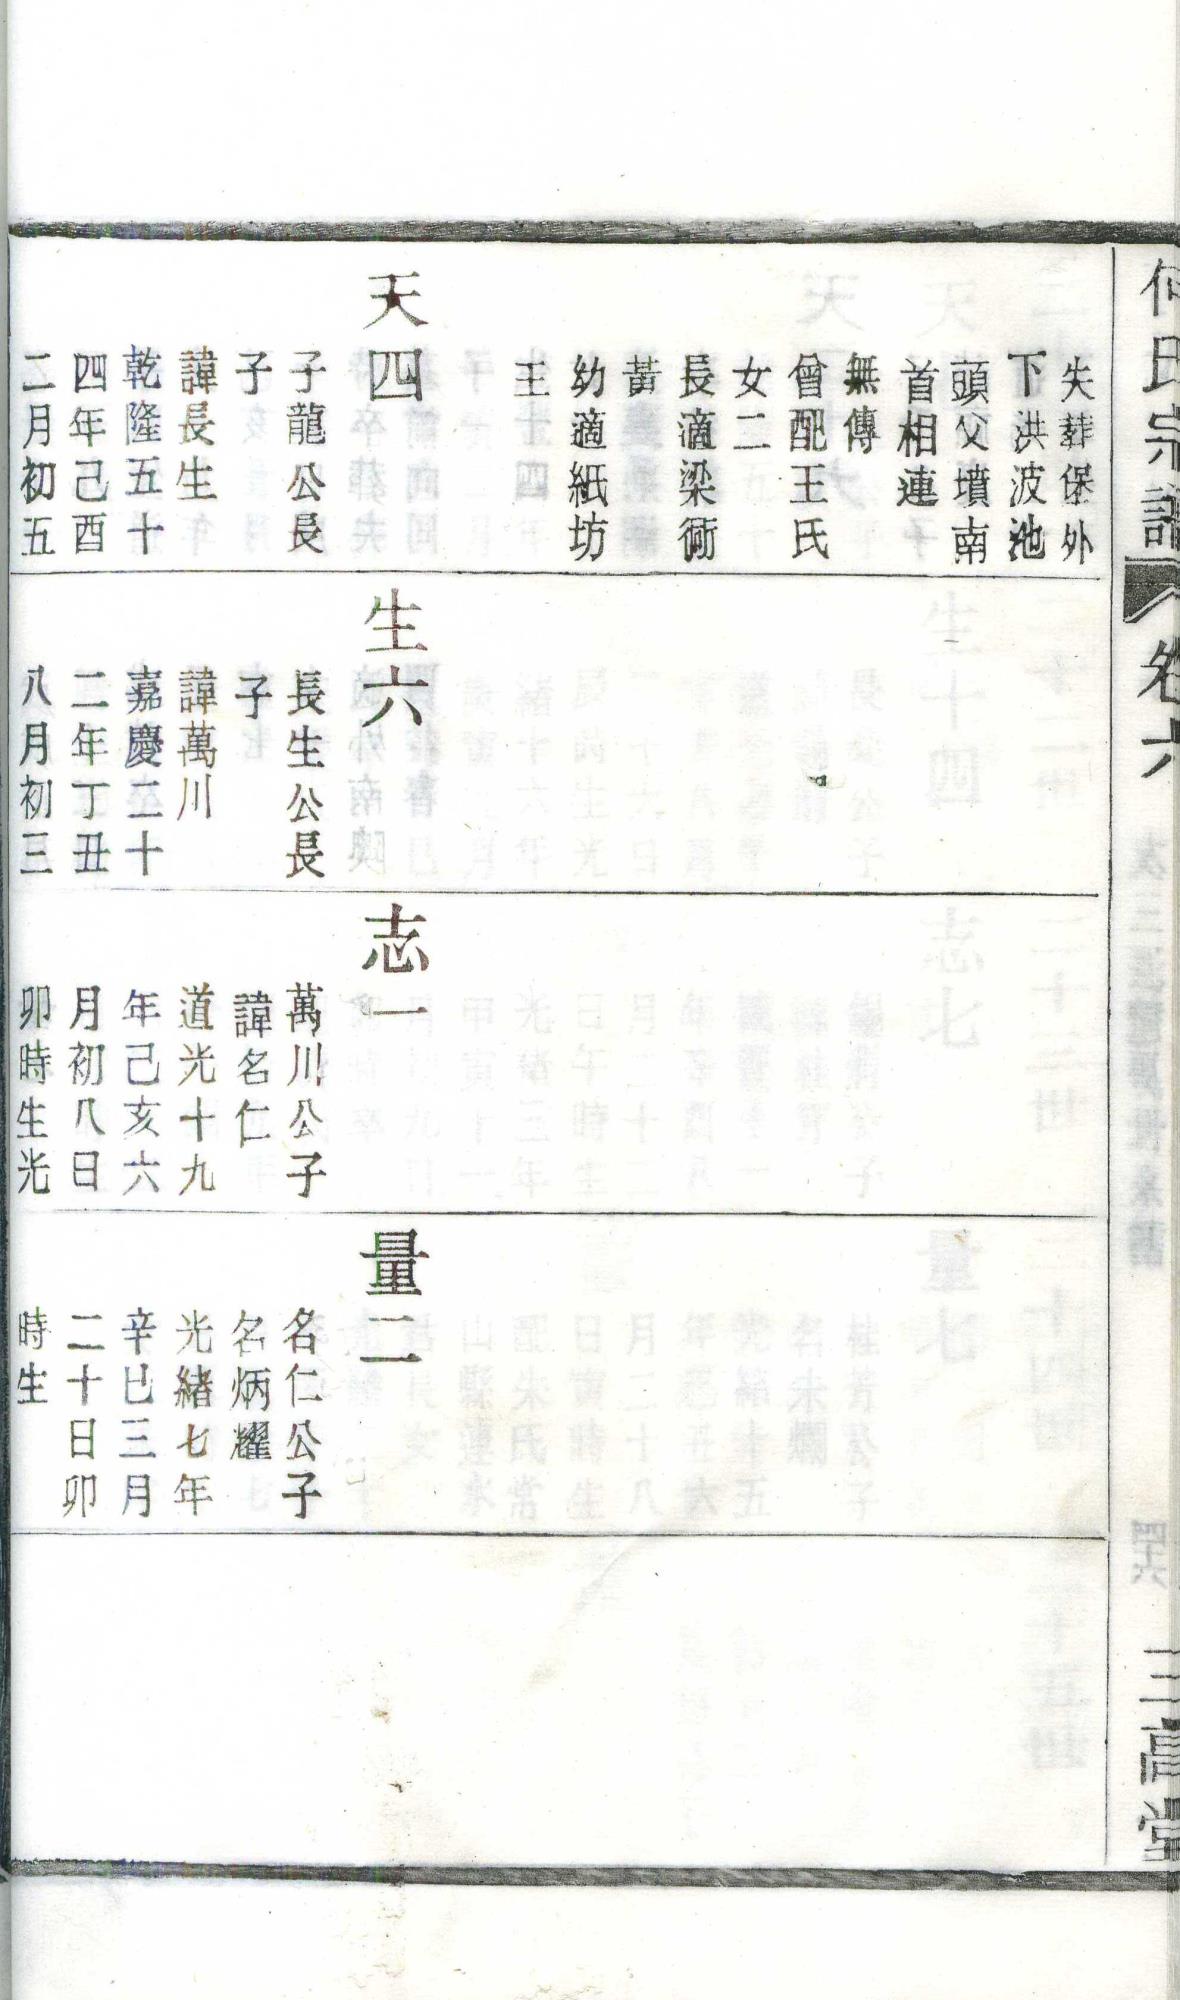 何氏宗譜
卷六
三高堂
失葬堡外
下洪波池
頭父墳南
首相連
無傳
曾配王氏
女二
長適梁衕
黃
幼適紙坊
王
天四
子龍公長
子
諱長生
乾隆五十
四年己酉
二月初五
生六
長生公長
子
諱萬川
嘉慶二十
二年丁丑
八月初三
志一
萬川公子
諱名仁
道光十九
年己亥六
月初八日
卯時生光
量二
名仁公子
名炳耀
光緒七年
辛巳三月
二十日卯
時生